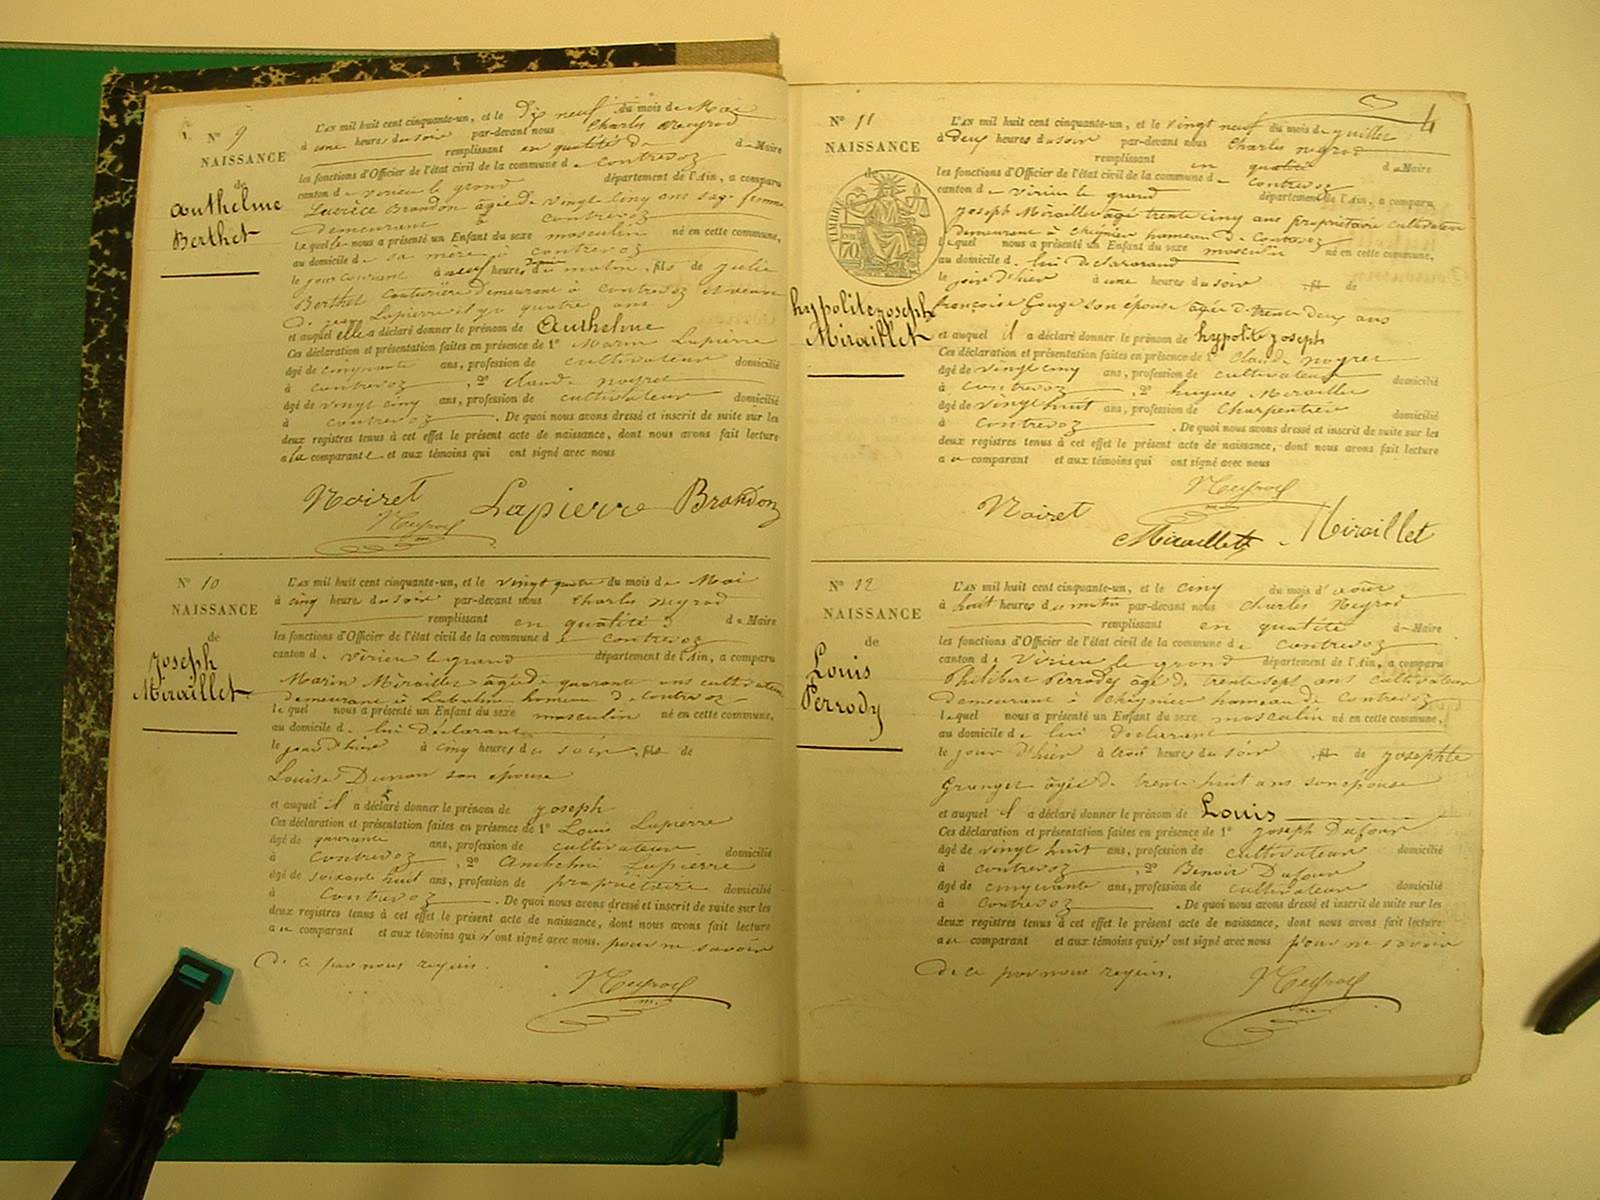 N° 9
NAISSANCE
de
Authelme
Berthet
L'AN mil huit cent cinquante-un, et le dix neuf du mois de Mai
à une heure du soir par-devant nous Charles Neyrod
remplissant en qualité de Maire
les fonctions d'Officier de l'état civil de la commune de Contrevoz
canton de virieu le grand département de l'Ain, a comparu
Brandon âgée de vingt cinq ans sage femme
demeurant à contrevoz
Lequelle nous a présenté un Enfant du sexe masculin né en cette commune,
au domicile de sa mère à contrevoz
le jour courant à neuf heures du matin, fils de julie
Berthet Couturière demeurant à contrevoz et veuve
de jean Lapierre il y a quatre ans
et auquel elle a déclaré donner le prénom de Authelme
Ces déclaration et présentation faites en présence de 1° Marin Lapierre
âgé de cinquante ans, profession de cultivateur domicilié
à contrevoz, 2° claude noyret
âgé de vingt cinq ans, profession de cultivateur domicilié
à contrevoz. De quoi nous avons dressé et inscrit de suite sur les
deux registres tenus à cet effet le présent acte de naissance, dont nous avons fait lecture
a la comparante et aux témoins qui ont signé avec nous
Noiret Lapierre Brandon
Neyrod
N° 10
NAISSANCE
de
joseph
Miraillet
L'AN mil huit cent cinquante-un, et le vingt quatre du mois de Mai
à cinq heure du soir par-devant nous Charles neyrod
remplissant en qualité de Maire
les fonctions d'Officier de l'état civil de la commune de contrevoz
canton de virieu le grand département de l'Ain, a comparu
Marin Miraillet âgé de quarante ans cultivateur
demeurant à hameau de contrevoz
lequel nous a présenté un Enfant du sexe masculin né en cette commune,
au domicile de lui déclarant
le jour d'hier à cinq heures du soir, fils de
Louise Dunan son épouse
et auquel il a déclaré donner le prénom de joseph
Ces déclaration et présentation faites en présence de 1° Louis Lapierre
âgé de quarante ans, profession de cultivateur domicilié
à contrevoz, 2° Anthelme Lapierre
âgé de soixante huit ans, profession de propriétaire domicilié
à contrevoz. De quoi nous avons dressé et inscrit de suite sur les
deux registres tenus à cet effet le présent acte de naissance, dont nous avons fait lecture
a u comparant et aux témoins qui n'ont signé avec nous, pour ne savoir
de ce par nous requis.
Neyrod
4
N° 11
NAISSANCE
de
TIMBRE
hypolite joseph
Miraillet
L'AN mil huit cent cinquante-un, et le vingt neuf du mois de juillet
à deux heures du soir par-devant nous Charles neyrod
remplissant en qualité de Maire
les fonctions d'Officier de l'état civil de la commune de contrevoz
canton de virieu le grand département de l'Ain, a comparu
joseph Miraillet âgé trente cinq ans propriétaire cultivateur
demeurant à cheignieu hameau de Contrevoz
lequel nous a présenté un Enfant du sexe masculin né en cette commune,
au domicile de lui déclarant
le jour d'hier à une heures du soir de
françoise Gouge son épouse âgée de trente deux ans
et auquel il a déclaré donner le prénom de hypolite joseph
Ces déclaration et présentation faites en présence de 1° Claude noyret
âgé de vingt cinq ans, profession de cultivateur domicilié
à contrevoz, 2° hugues Miraillet
âgé de vingt huit ans, profession de Charpentier domicilié
à contrevoz. De quoi nous avons dressé et inscrit de suite sur les
deux registres tenus à cet effet le présent acte de naissance, dont nous avons fait lecture
a u comparant et aux témoins qui ont signé avec nous
Neyrod
Noiret Miraillet Miraillet
N° 12
NAISSANCE
de
Louis
Perrody
L'AN mil huit cent cinquante-un, et le cinq du mois d'août
à huit heures du matin par-devant nous Charles Neyrod
remplissant en qualité de Maire
les fonctions d'Officier de l'état civil de la commune de contrevoz
canton de Virieu le grand département de l'Ain, a comparu
Philibert Perrody âgé de trente sept ans cultivateur
demeurant à cheignieu hameau de contrevoz
lequel nous a présenté un Enfant du sexe masculin né en cette commune,
au domicile de lui déclarant
le jour d'hier à trois heures du soir de josephte
Granger âgée de trente huit ans son épouse
et auquel il a déclaré donner le prénom de Louis
Ces déclaration et présentation faites en présence de 1° joseph Dufour
âgé de vingt huit ans, profession de cultivateur domicilié
à contrevoz, 2° Benoît Dufour
âgé de cinquante ans, profession de cultivateur domicilié
à contrevoz. De quoi nous avons dressé et inscrit de suite sur les
deux registres tenus à cet effet le présent acte de naissance, dont nous avons fait lecture
a u comparant et aux témoins qui n'ont signé avec nous pour ne savoir
de ce par nous requis.
Neyrod